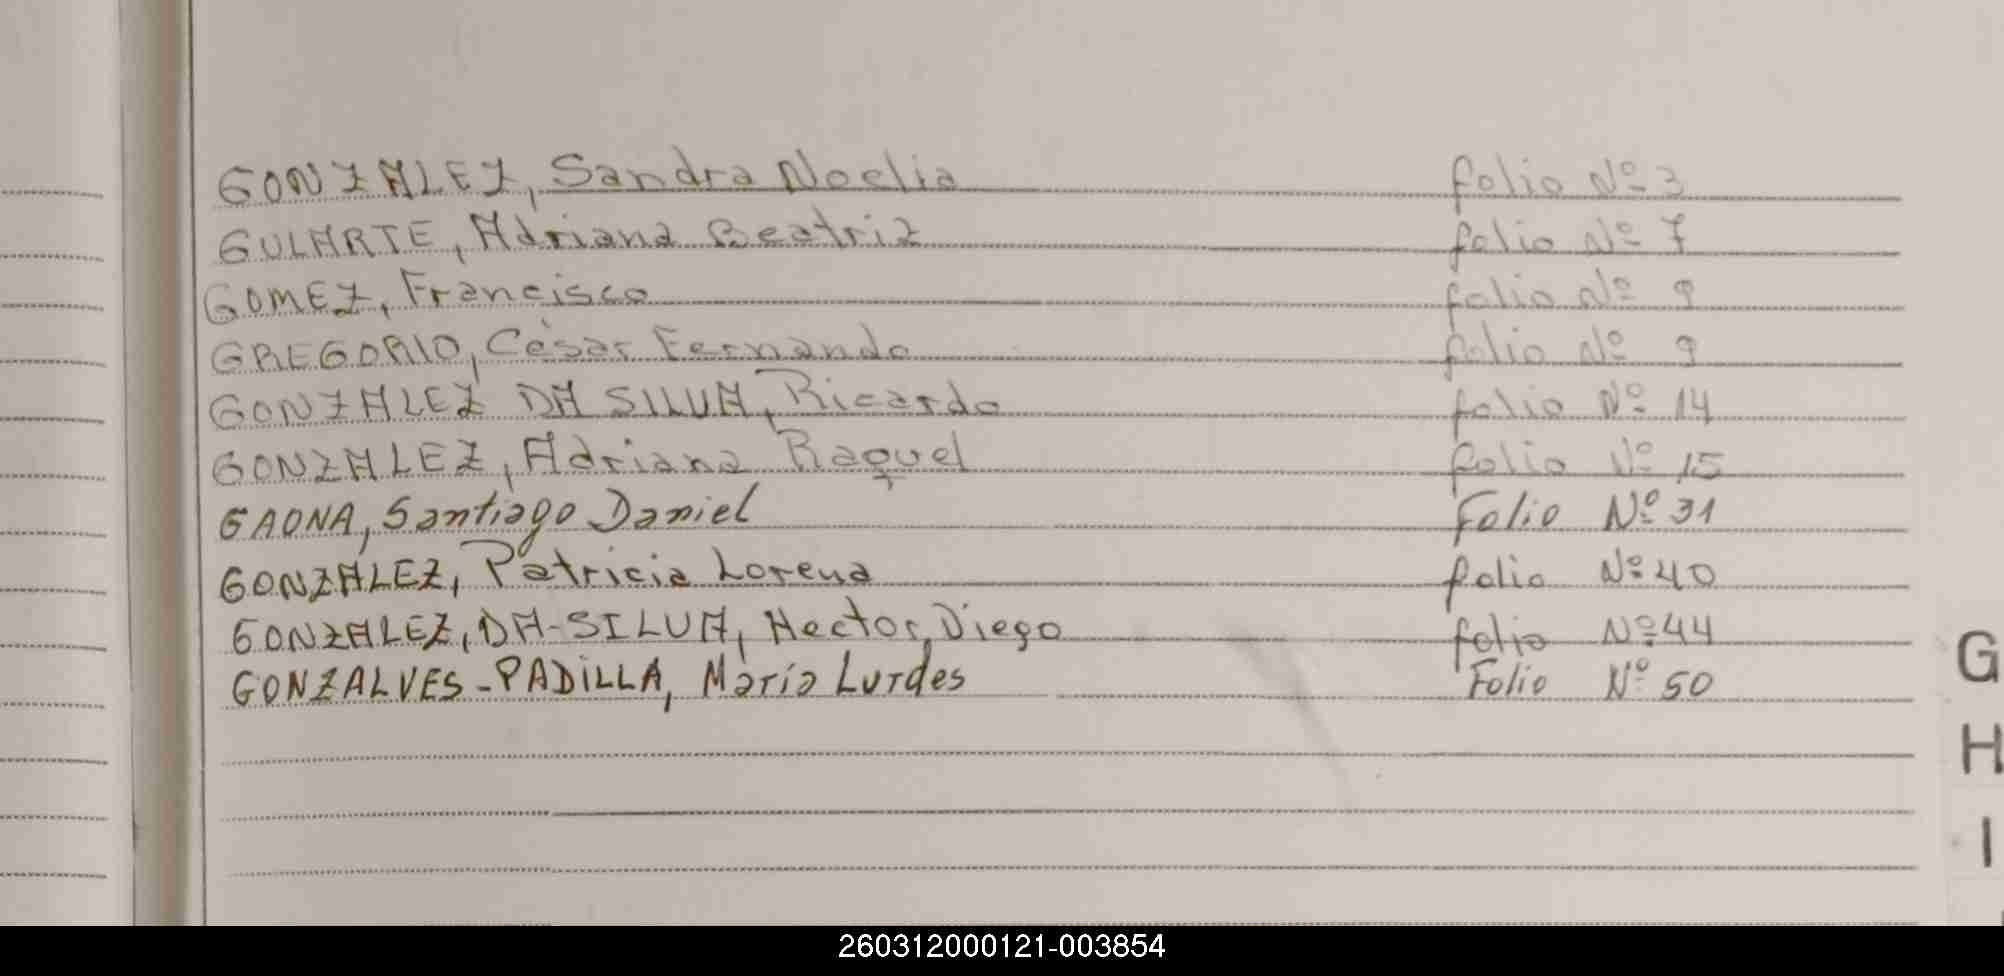 GONZALEZ, Sandra Noelia folio Nº 3
GULARTE, Adriana Beatriz folio Nº 7
GOMEZ, Francisco folio Nº 9
GREGORIO, César Fernando folio Nº 9
GONZALEZ DA SILVA, Ricardo folio Nº 14
GONZALEZ, Adriana Raquel folio Nº 15
GAONA, Santiago Daniel Folio Nº 31
GONZALEZ, Patricia Lorena folio Nº 40
GONZALEZ, DA-SILVA, Hector, Diego folio Nº 44
GONZALVES-PADILLA, María Lurdes Folio Nº 50
G
H
I
260312000121-003854